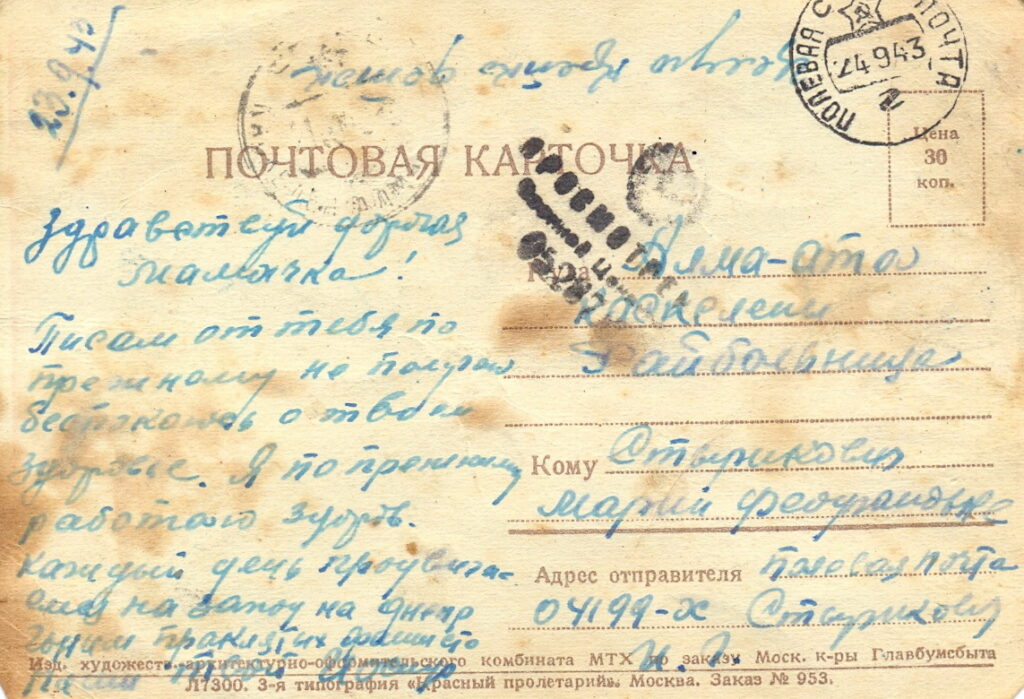 23.9.43
ПОЛЕВАЯ ПОЧТА
24 9 43
ПОЧТОВАЯ КАРТОЧКА
Цена
30
коп.
Здравствуй дорогая
мамочка!
Писем от тебя по
прежному не получаю
беспокоюсь о твоем
здоровье. Я по прежниму
работаю здоров.
Каждый день продвига-
емся на запад на днепр
гоним проклятых фашисто
Твой
ПРОСМОТРЕНО
Военной Ц
05287
Куда Алма-ата
Каскелени
Райбольница
Кому Стырикович
Марии
Адрес отправителя Полевая почта
04199-Х Стырикович
Изд. художеств.-архитектурно-оформительского комбината МТХ по заказу Моск. к-ры Главбумсбыта
Л7300. 3-я типография «Красный пролетарий». Москва. Заказ № 953.